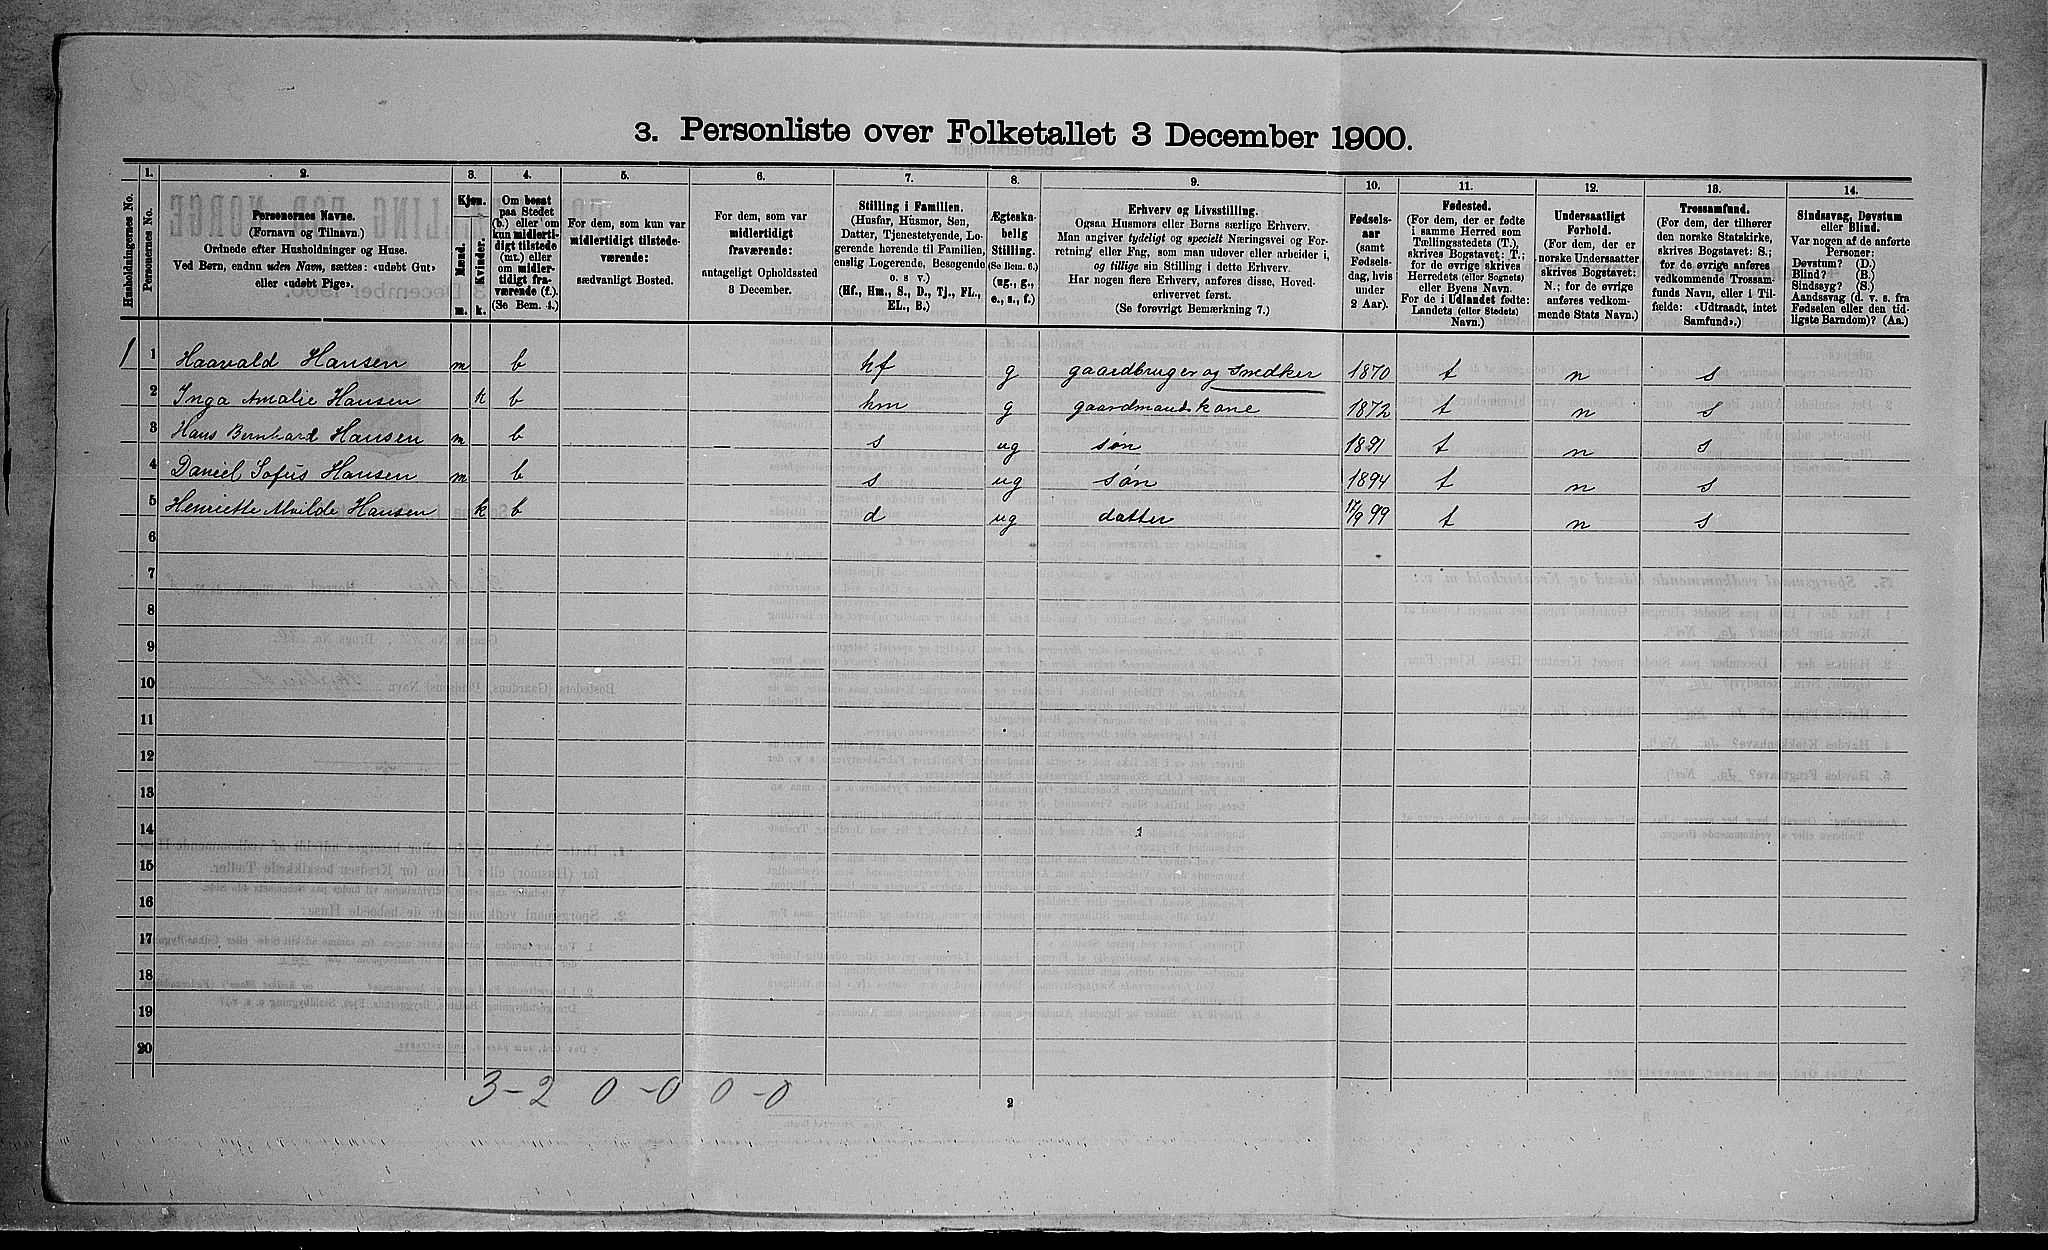 3. Personliste over Folketallet 3 December 1900.
1. 2. 3. 4. 5. 6. 7. 8. 9. 10. 11. 12. 13. 14.
Husholdningernes No.
Personernes No.
Personernes Navne.
(Fornavn og Tilnavn.)
Ordnede efter Husholdninger og Huse.
Ved Børn, endnu uden Navn, sættes: «udøbt Gut»
eller «udøbt Pige».
Kjøn.
Mænd.
m.
Kvinder.
k.
Om bosat
paa Stedet
(b.) eller om
kun midlerti-
digt tilstede
(mt.) eller
om midler-
tidigt fra-
værende (f.).
(Se Bem. 4.)
For dem, som kun var
midlertidigt tilstede-
værende:
sædvanligt Bosted.
For dem, som var
midlertidigt
fraværende:
antageligt Opholdssted
3 December.
Stilling i Familien.
(Husfar, Husmor, Søn,
Datter, Tjenestetyende, Lo-
gerende hørende til Familien,
enslig Logerende, Besøgende
o. s. v.)
(Hf., Hm., S., D., Tj., FL.,
EL., B.)
Ægteska-
belig
Stilling.
(Se Bem. 6.)
(ug., g.,
e., s., f.)
Erhverv og Livsstilling.
Ogsaa Husmors eller Børns særlige Erhverv.
Man angiver tydeligt og specielt Næringsvei og For-
retning eller Fag, som man udøver eller arbeider i,
og tillige sin Stilling i dette Erhverv.
Har nogen flere Erhverv, anføres disse, Hoved-
erhvervet først.
(Se forøvrigt Bemærkning 7.)
Fødsels-
aar
(samt
Fødsels-
dag, hvis
under
2 Aar).
Fødested.
(For dem, der er fødte
i samme Herred som
Tællingsstedets (T.),
skrives Bogstavet: T.;
for de øvrige skrives
Herredets (eller Sognets)
eller Byens Navn.
For de i Udlandet fødte:
Landets (eller Stedets)
Navn.)
Undersaatligt
Forhold.
(For dem, der er
norske Undersaatter
skrives Bogstavet:
N.; for de øvrige
anføres vedkom-
mende Stats Navn.)
Trossamfund.
(For dem, der tilhører
den norske Statskirke,
skrives Bogstavet: S.;
for de øvrige anføres
vedkommende Trossam-
funds Navn, eller i Til-
fælde: «Udtraadt, intet
Samfund».)
Sindssvag, Døvstum
eller Blind.
Var nogen af de anførte
Personer:
Døvstum? (D.)
Blind? (B.)
Sindssyg? (S.)
Aandssvag (d. v. s. fra
Fødselen eller den tid-
ligste Barndom)? (Aa.)
1 1 Haavald Hansen m b hf g gaardbruger og snedker 1870 t n s
2 Inga Amalie Hansen k b hm g gaardmandskone 1872 t n s
3 Hans Bernhard Hansen m b s ug søn 1891 t n s
4 Daniel Sofus Hansen m b s ug søn 1894 t n s
5 Henriette Alvilde Hansen k b d ug datter 17/9 99 t n s
6
7
8
9
10
11
12
13
14
15
16
17
18
19
20
3-2 0-0 0-0
2